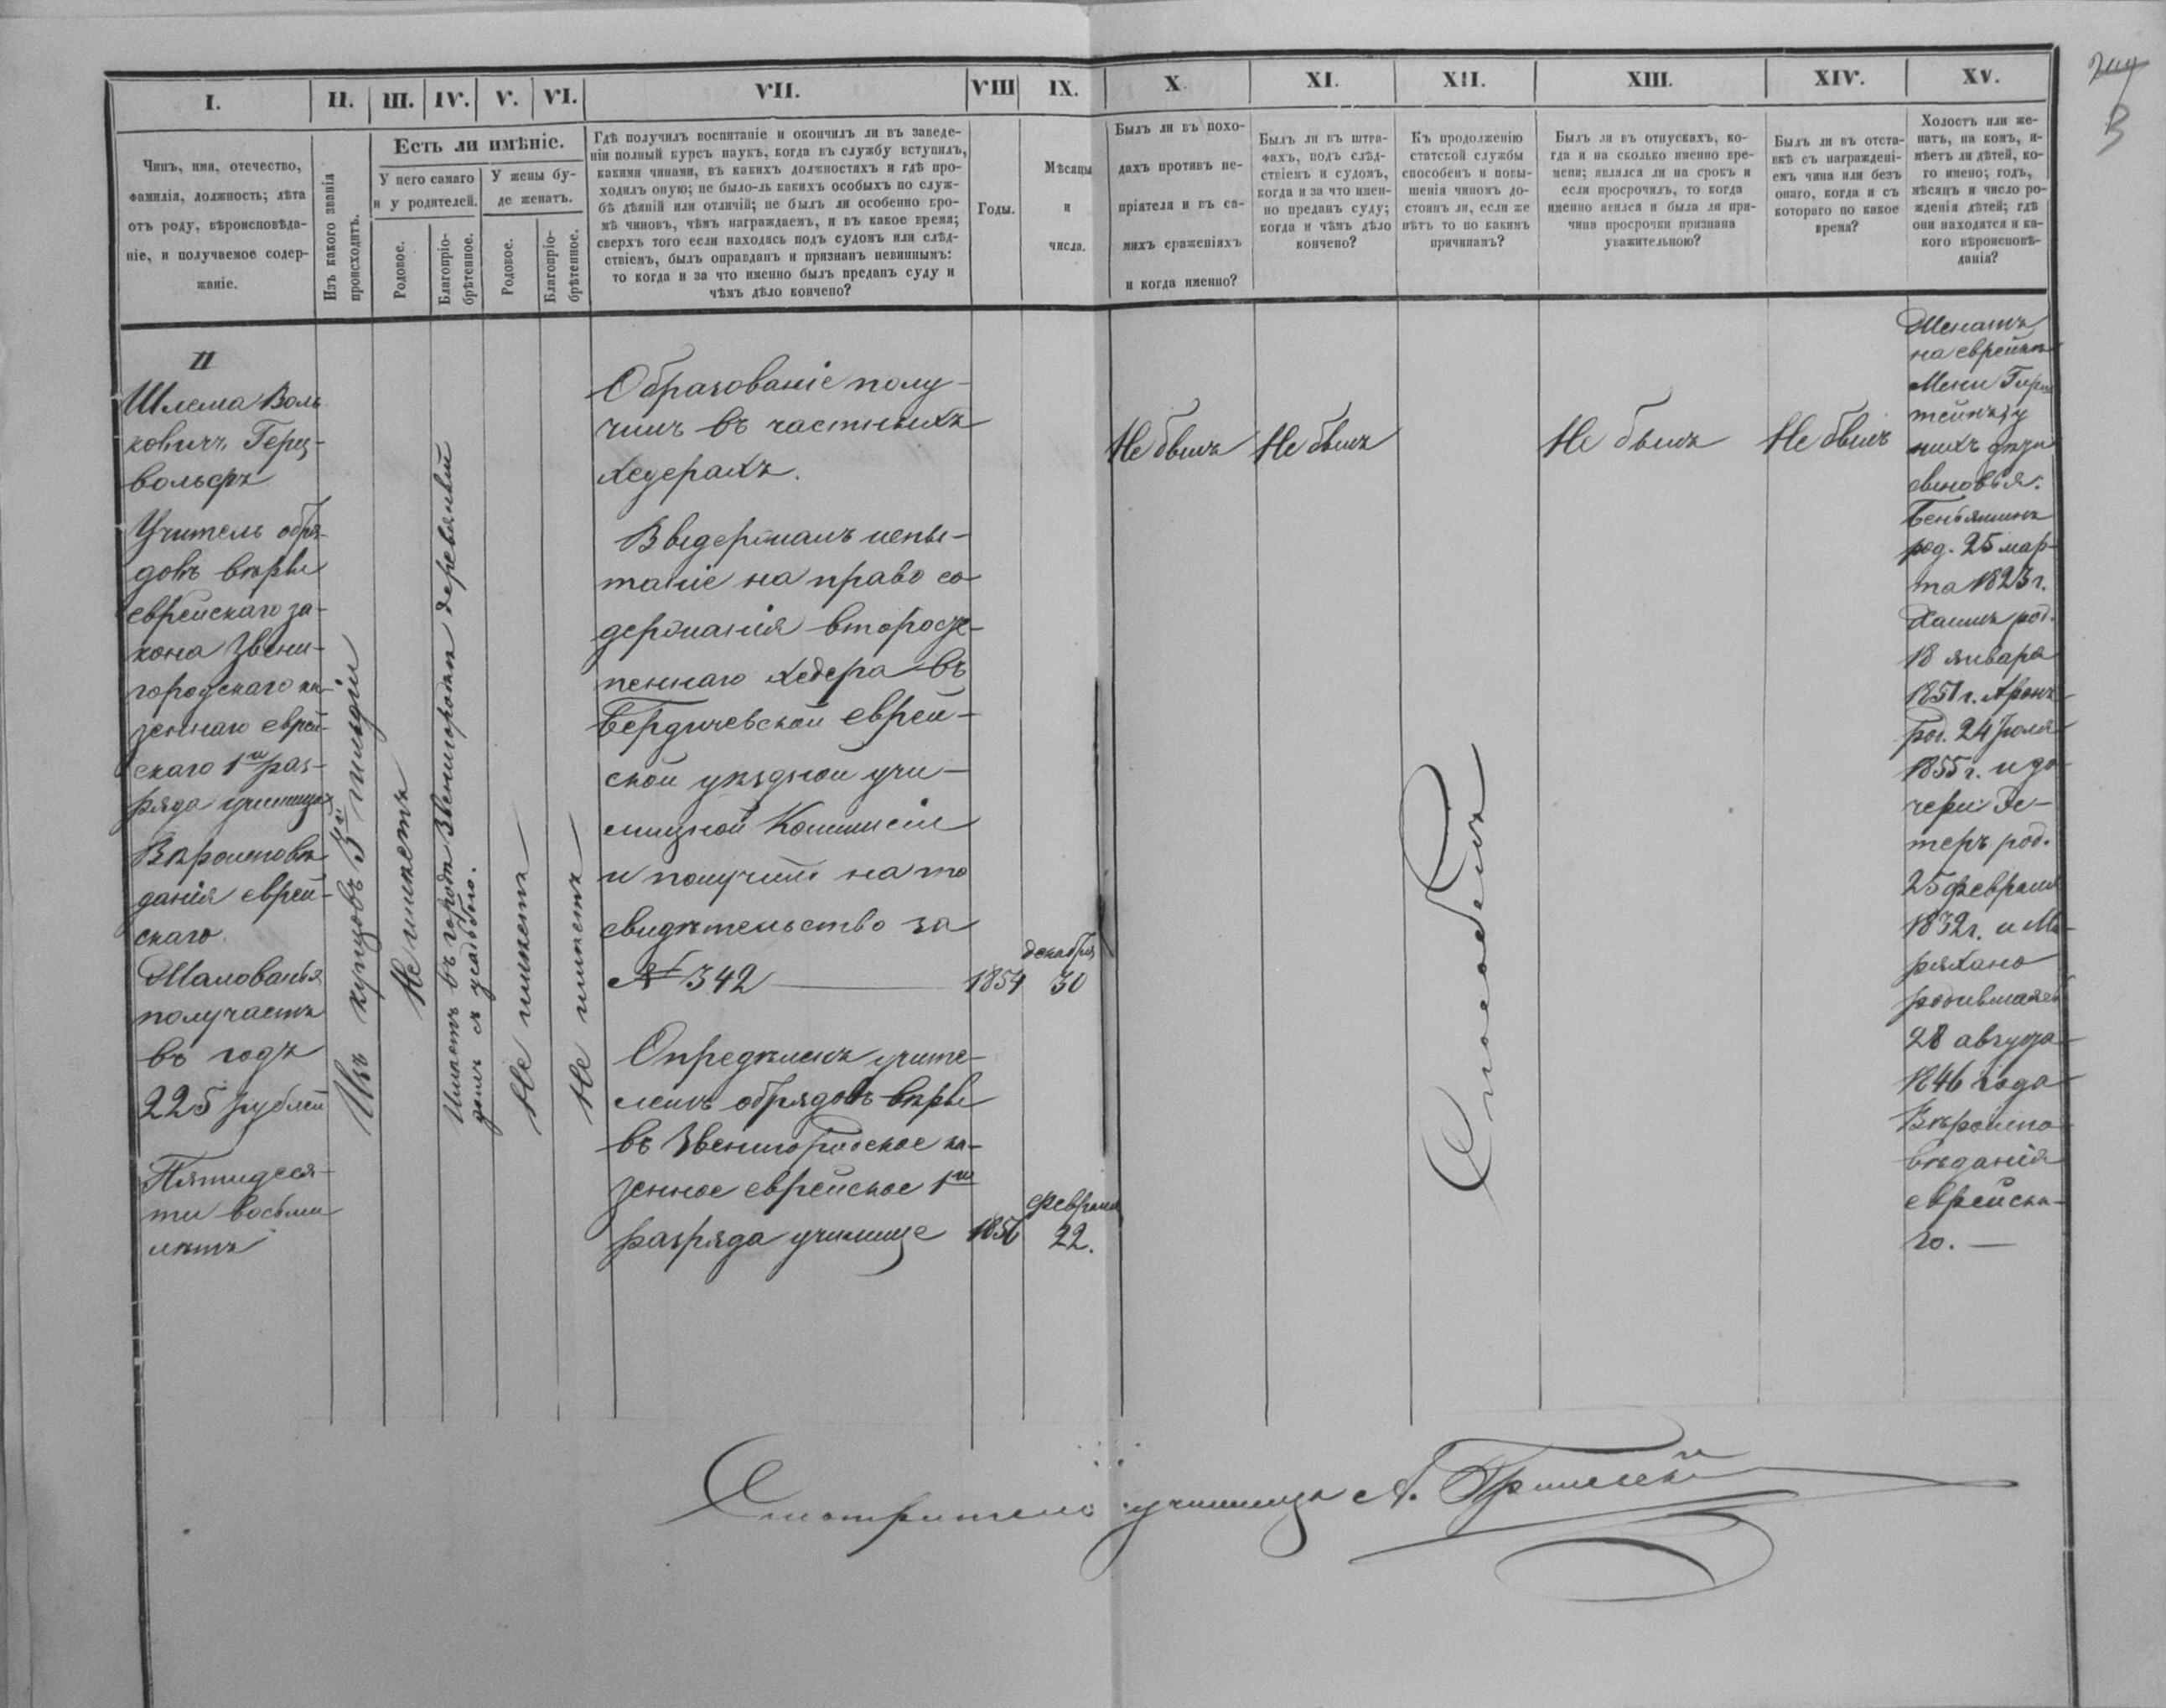 I. II. III. IV. V. VI. VII. VIII IX. X. XI. XII. XIII. XIV. XV.
Чинъ, имя, отечество,
фамилія, должность; лѣта
отъ роду, вѣроисповѣда-
ніе, и получаемое содер-
жаніе.
Изъ какого званія
происходитъ.
Есть ли имѣніе.
У него самаго
и у родителей.
У жены бу-
де женатъ.
Родовое.
Благопріо-
брѣтенное.
Родовое.
Благопріо-
брѣтенное.
Гдѣ получилъ воспитаніе и окончилъ ли въ заведе-
ніи полный курсъ наукъ, когда въ службу вступилъ,
какими чинами, въ какихъ должностяхъ и гдѣ про-
ходилъ оную; не было-ль какихъ особыхъ по служ-
бѣ дѣяній или отличій; не былъ ли особенно кро-
мѣ чиновъ, чѣмъ награждаемъ, и въ какое время;
сверхъ того если находясь подъ судомъ или слѣд-
ствіемъ, былъ оправданъ и признанъ невиннымъ:
то когда и за что именно былъ преданъ суду и
чѣмъ дѣло кончено?
Годы.
Мѣсяцы
и
числа.
Былъ ли въ похо-
дахъ противъ не-
пріятеля и въ са-
михъ сраженіяхъ
и когда именно?
Былъ ли въ штра-
фахъ, подъ слѣд-
ствіемъ и судомъ,
когда и за что имен-
но преданъ суду;
когда и чѣмъ дѣло
кончено?
Къ продолженію
статской службы
способенъ и повы-
шенія чиномъ до-
стоинъ ли, если же
нѣтъ то по какимъ
причинамъ?
Былъ ли въ отпускахъ, ко-
гда и на сколько именно вре-
мени; являлся ли на срокъ и
если просрочилъ, то когда
именно явился и была ли при-
чина просрочки признана
уважительною?
Былъ ли въ отста-
вкѣ съ награжденi-
емъ чина или безъ
онаго, когда и съ
котораго по какое
время?
Холостъ или же-
натъ, на комъ, и-
мѣетъ ли дѣтей, ко-
го имено; годъ,
мѣсяцъ и число ро-
жденія дѣтей; гдѣ
они находятся и ка-
кого вѣроисповѣ-
данія?
II
Шлема Воль
ковичъ Герц-
вольфъ
Учитель обря-
довъ вѣры
еврейскаго за-
кона Звени-
городскаго ка-
зеннаго еврей-
скаго 1го раз-
ряда училища
Вѣроисповѣ
данія еврей-
скаго.
Жалованья
получаетъ
въ годъ
225 рублей
Пятидеся-
ти восьми
лѣтъ
Изъ купцовъ 3й гильдіи
Не имѣетъ
Имѣетъ въ городѣ Звенигородкѣ деревянный
домъ съ усадьбою.
Не имѣетъ
Не имѣетъ
Образованіе полу-
чилъ въ частныхъ
хедерахъ.
Выдержалъ испы-
таніе на право со
держанія второсте-
пеннаго хедера въ
Бердичевской еврей-
ской уѣздной учи-
лищной Коммисіи
и получилъ на то
свидѣтельство за
№ 342 1854 декабря 30
Опредѣленъ учите-
лемъ обрядовъ вѣры
въ Звенигородское ка-
зенное еврейское 1го
разряда училище 1856 февраля 22.
Не былъ
Не былъ
Способенъ
Не былъ
Не былъ
Женатъ
на еврейкѣ
Мени
у
нихъ дѣти
сыновья.
Беньяминъ
род. 25 мар-
та 1823 г.
Хаимъ род.
18 января
1851 г. Аронъ
род. 24 Іюля
1855 г. и до-
чери Эс-
теръ род.
25 февраля
1832 г. и Ма-
рядлано
родившаяся
28 августа
1846 года
Вѣроиспо-
вѣданія
еврейска-
го.
Смотритель училища А.